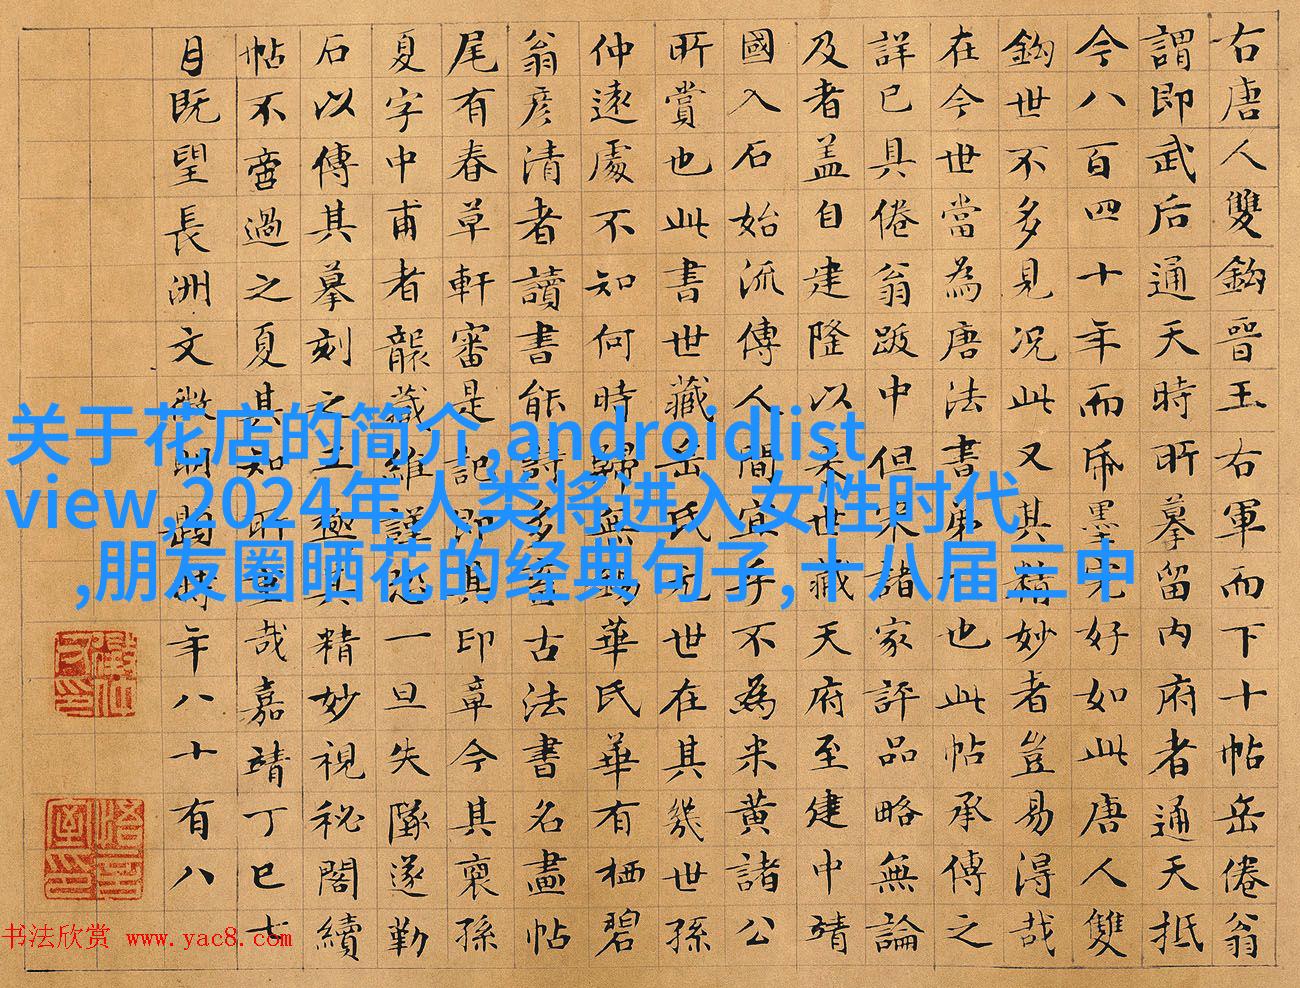 右唐人雙鈎晉王右軍而下十帖岳倦翁
謂即武后通天時所摹留内府者通天抵
今八百四十年而帋墨完好如此唐人雙
鈎世不多見况此又其精妙者豈易得哉
在今世當為唐法書第一也此帖承傳之
詳已具倦翁跋中但宋諸家評品略無論
及者盖自建隆以来世藏天府至建中靖
國入石始流傳人間宜乎不為米黄諸公
所賞也此書世藏岳氏元世在其幾世孫
仲遠處不知何時歸無錫華氏華有栖碧
翁彦清者讀書能詩多蓄古法書名畫帖
尾有春草軒審是記即其印章今其裔孫
夏字中甫者襲藏維謹恐一旦失墜遂勒
石以傳其摹刻之工極其精妙視秘閣續
帖不啻過之夏其知所重哉嘉靖丁巳七
月既望長洲文徵明題時年八十有八
关于花店的简介,androidlist
view,2024年人类将进入女性时代
,朋友圈晒花的经典句子,十八届三中
书法欣赏 www.yac8.com